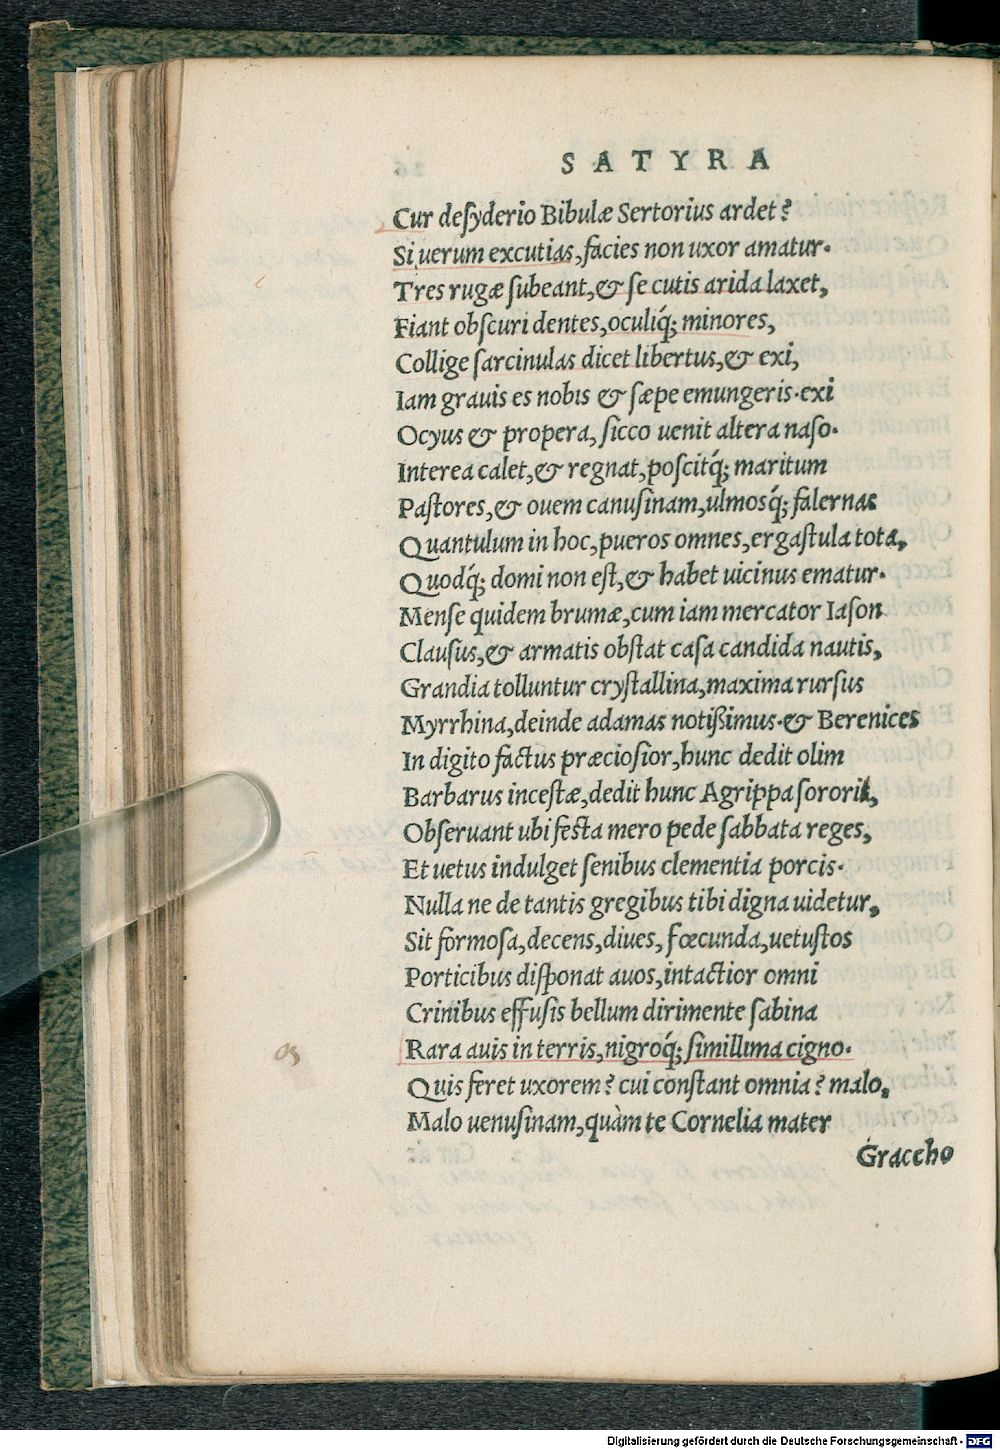 SATYRA
Cur desyderio Bibulæ Sertorius ardet?
Si uerum excutias, facies non uxor amatur.
Tres rugæ subeant, & se cutis arida laxet,
Fiant obscuri dentes, oculiq́; minores,
Collige sarcinulas dicet libertus, & exi,
Iam grauis es nobis & sæpe emungeris. exi
Ocyus & propera, sicco uenit altera naso.
Interea calet, & regnat, poscitq́; maritum
Pastores, & ouem canusinam, ulmosq́; falernas
Quantulum in hoc, pueros omnes, ergastula tota,
Quodq́; domi non est, & habet uicinus ematur.
Mense quidem brumæ, cum iam mercator Iason
Clausus, & armatis obstat casa candida nautis,
Grandia tolluntur crystallina, maxima rursus
Myrrhina, deinde adamas notißimus. & Berenices
In digito factus præciosior, hunc dedit olim
Barbarus incestæ, dedit hunc Agrippa sorori,
Obseruant ubi festa mero pede sabbata reges,
Et uetus indulget senibus clementia porcis.
Nulla ne de tantis gregibus tibi digna uidetur,
Sit formosa, decens, diues, fœcunda, uetustos
Porticibus disponat auos, intactior omni
Crinibus effusis bellum dirimente sabina
Rara auis in terris, nigroq́; simillima cigno.
Quis feret uxorem? cui constant omnia? malo,
Malo uenusinam, quàm te Cornelia mater
Graccho
Digitalisierung gefördert durch die Deutsche Forschungsgemeinschaft - DFG